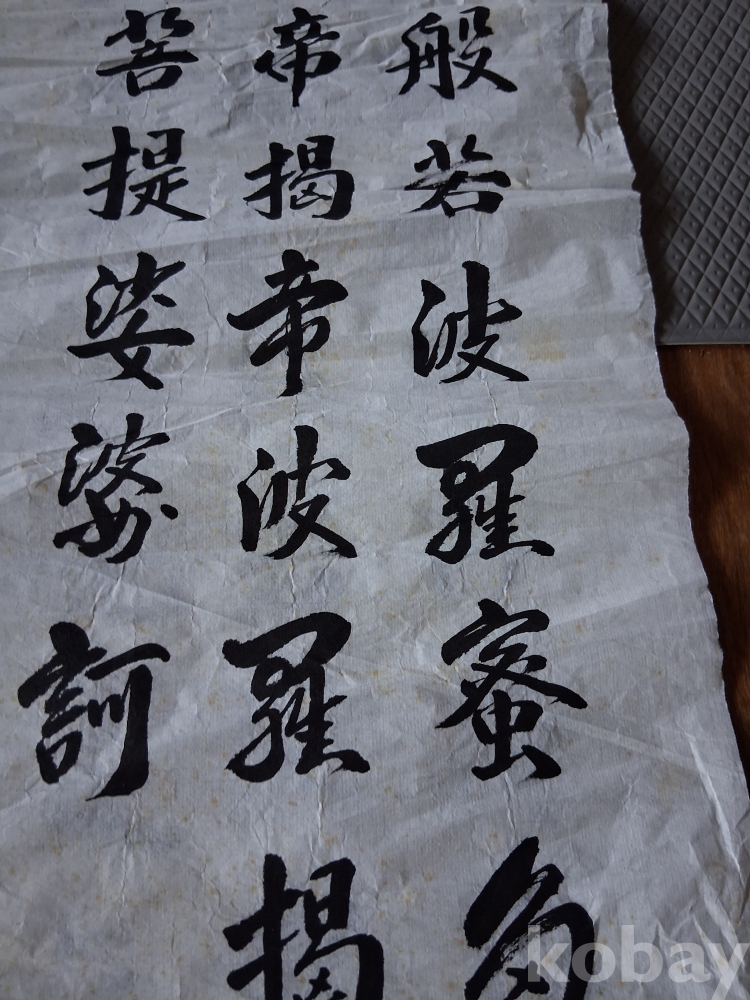 般若波羅蜜多
帝揭帝波羅揭
菩提娑婆訶
kobay